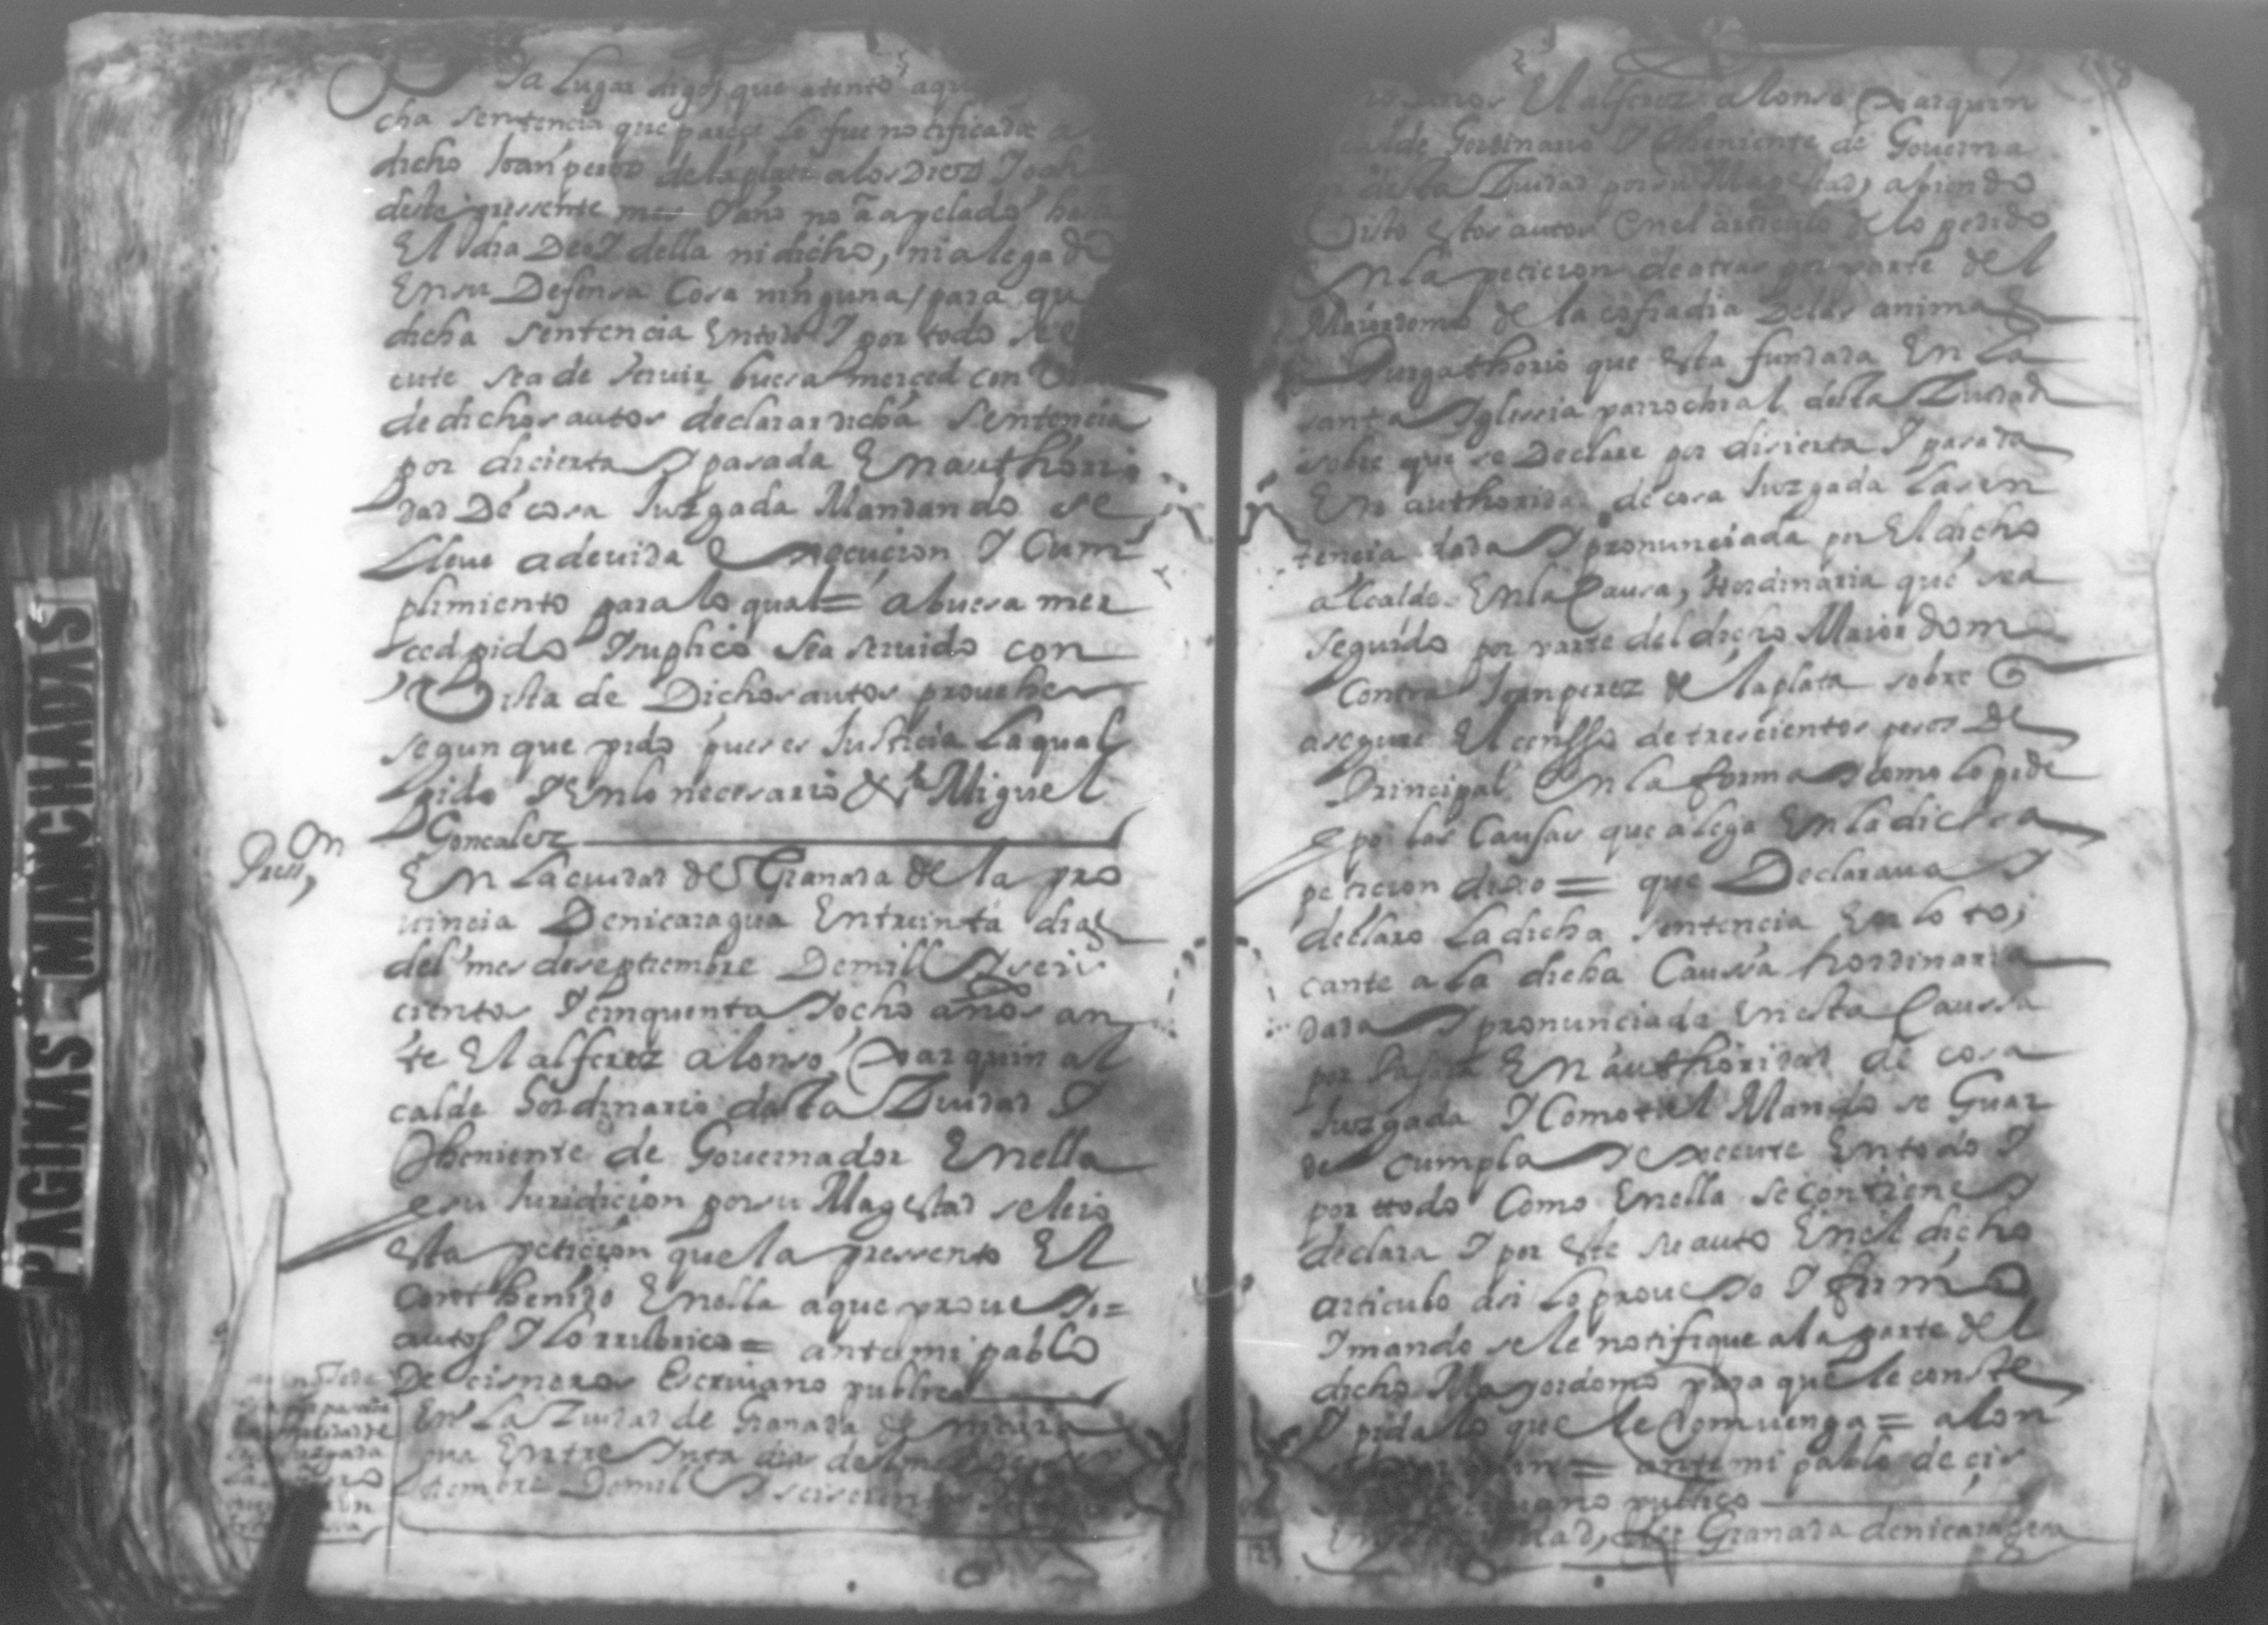 ia Lugar digo, que atento aque
cha sentencia que parece le fue notificada al
dicho Joan perez de la plata a los Diez I
deste pressente mes I año no a apelado hasta
El dia De oI della ni dicho, ni alegado
En su Defensa Cosa ninguna, para que
dicha sentencia En todo I por todo se
cute sea de seruir buesa merced con Vista
de dichos autos declarar dicha sentencia
por decierta I pasada En authori
dad De cosa Juzgada Mandando se
lleue a deuida Exsecucion I Cum
plimiento para lo qual = a buesa mer
ced pido I suplico sea seruido con
Vista de Dichos autos proueher
segun que pido pues es Justicia la qual
pido I En lo necesario &ª Miguel
Goncalez
Presson,
En La ciudad de Granada de la pro
uincia De nicaragua En treinta dias
del mes de septiembre De mill I seis
cientos I cinquenta I ocho años an
te El alferez alonso Xarquin al
calde hordinario desta Ziudad I
Theniente de Gouernador En ella
e su Juridicion por su Magestad se leio
esta peticion que la pressento El
conthenido En ella a que proueIo =
autos I lo rrubrico = ante mi pablo
De cisneros Escriuano publico
En La Ziudad de Granada de nicara
gua En treInta dias del mes de sep
tiembre De mill I seiscientos
El alferez alonso Xarquin
alcalde hordinario I Theniente de Gouerna
dor desta Ziudad por su Magestad, abiendo
Visto estos autos En el articulo de lo pedido
En la peticion de atras por parte del
Maiordomo de la cofradia De las animas
Purgathorio que esta fundada En la
santa Iglessia parrochial desta Ziudad
sobre que se Declare por disierta I pasada
En authoridad de cosa Juzgada la sen
tencia dada I pronunciada por El dicho
alcalde En la Causa, hordinaria que sea
seguido por parte del dicho Maiordomo
Contra Joan perez de la plata sobre
asegure El censso de trescientos pesos De
Principal En la forma I como lo pide
e por las Causas que alega En la dicha
peticion dixo = que Declaraua I
declaro La dicha sentencia En lo to,
cante a la dicha Caussa hordinaria
dada I pronunciada En esta Caussa
por Pasada En authoridad de cosa
Juzgada I Como tal Mando se Guar
de cumpla I execute En todo I
por ttodo Como En ella se contiene I
declara I por este su auto En el dicho
articulo asi lo proueIo I firmo
I mando se le notifique a la parte del
dicho Mayordomo para que le conste
I pida lo que le Comuenga = alon
so Xarquin = ante mi pablo de cis
neros Escriuano publico
En la Ciudad, de Granada de nicaragua
PAGINAS MANCHADAS